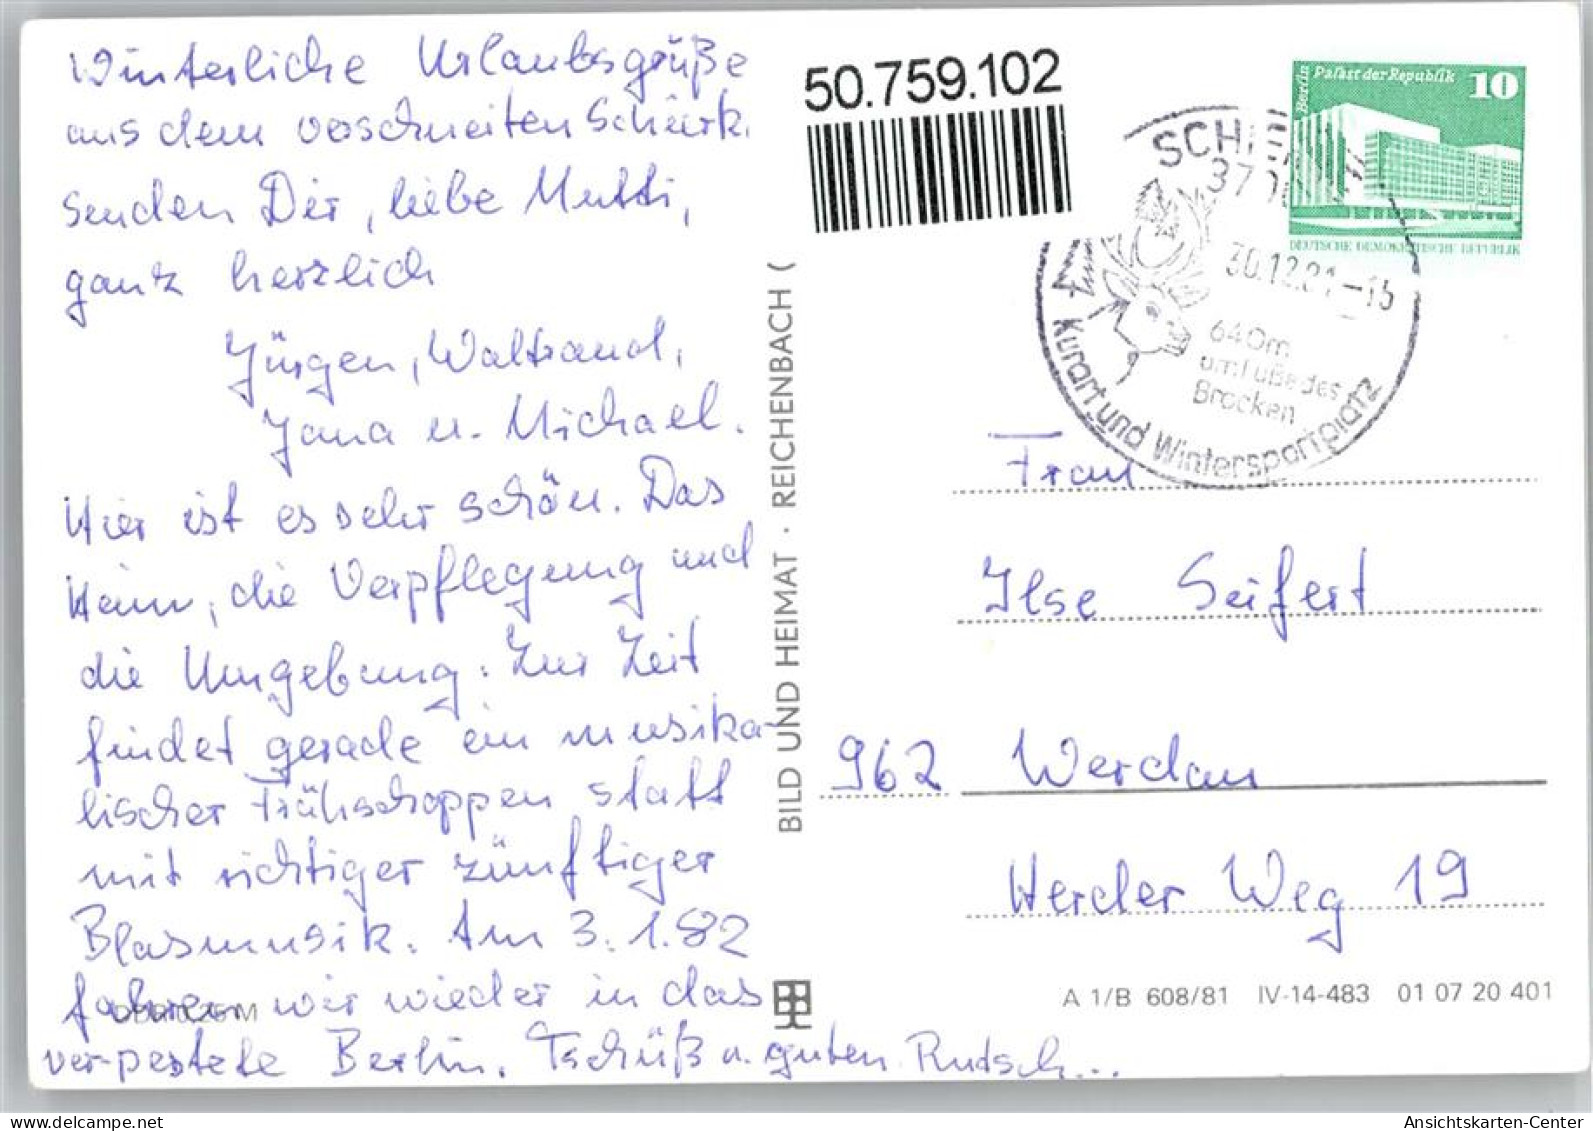 Winterliche Urlaubsgrüße
aus dem verschneiten Schierk.
senden Dir, liebe Mutti,
ganz herzlich
Jürgen, Waltraud,
Jana u. Michael.
Hier ist es sehr schön. Das
Heim, die Verpflegung und
die Umgebung. Zur Zeit
findet gerade ein musika-
lischer Frühschoppen statt
mit richtiger zünftiger
Blasmusik. Am 3.1.82
fahren wir wieder in das
verpestete Berlin. Tschüß u. guten Rutsch...
BILD UND HEIMAT · REICHENBACH (
50.759.102
Berlin Palast der Republik 10
DEUTSCHE DEMOKRATISCHE REPUBLIK
SCHIER
370
30.12.81-15
640m
am Fuße des
Brocken
Kurort und Wintersportplatz
Frau
Ilse Seifert
962 Werdau
Herder Weg 19
A 1/B 608/81 IV-14-483 01 07 20 401
www.oldthing.com
Ansichtskarten-Center